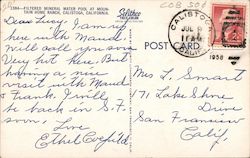 COB 504
1384—FILTERED MINERAL WATER POOL AT MOUNTAIN HOME RANCH, CALISTOGA, CALIFORNIA.
Dear Lucy: I am
here with Maude.
Will call you soon
Very hot here. But
having a nice
visit with Maude
& Frank. Will
be back in S.F.
soon.
Love
Ethel
POST CARD
CALISTOGA
JUL 9
1958
CALIF.
Mrs L. Smart
171 Lake Shore
Drive
San Francisco
Calif.